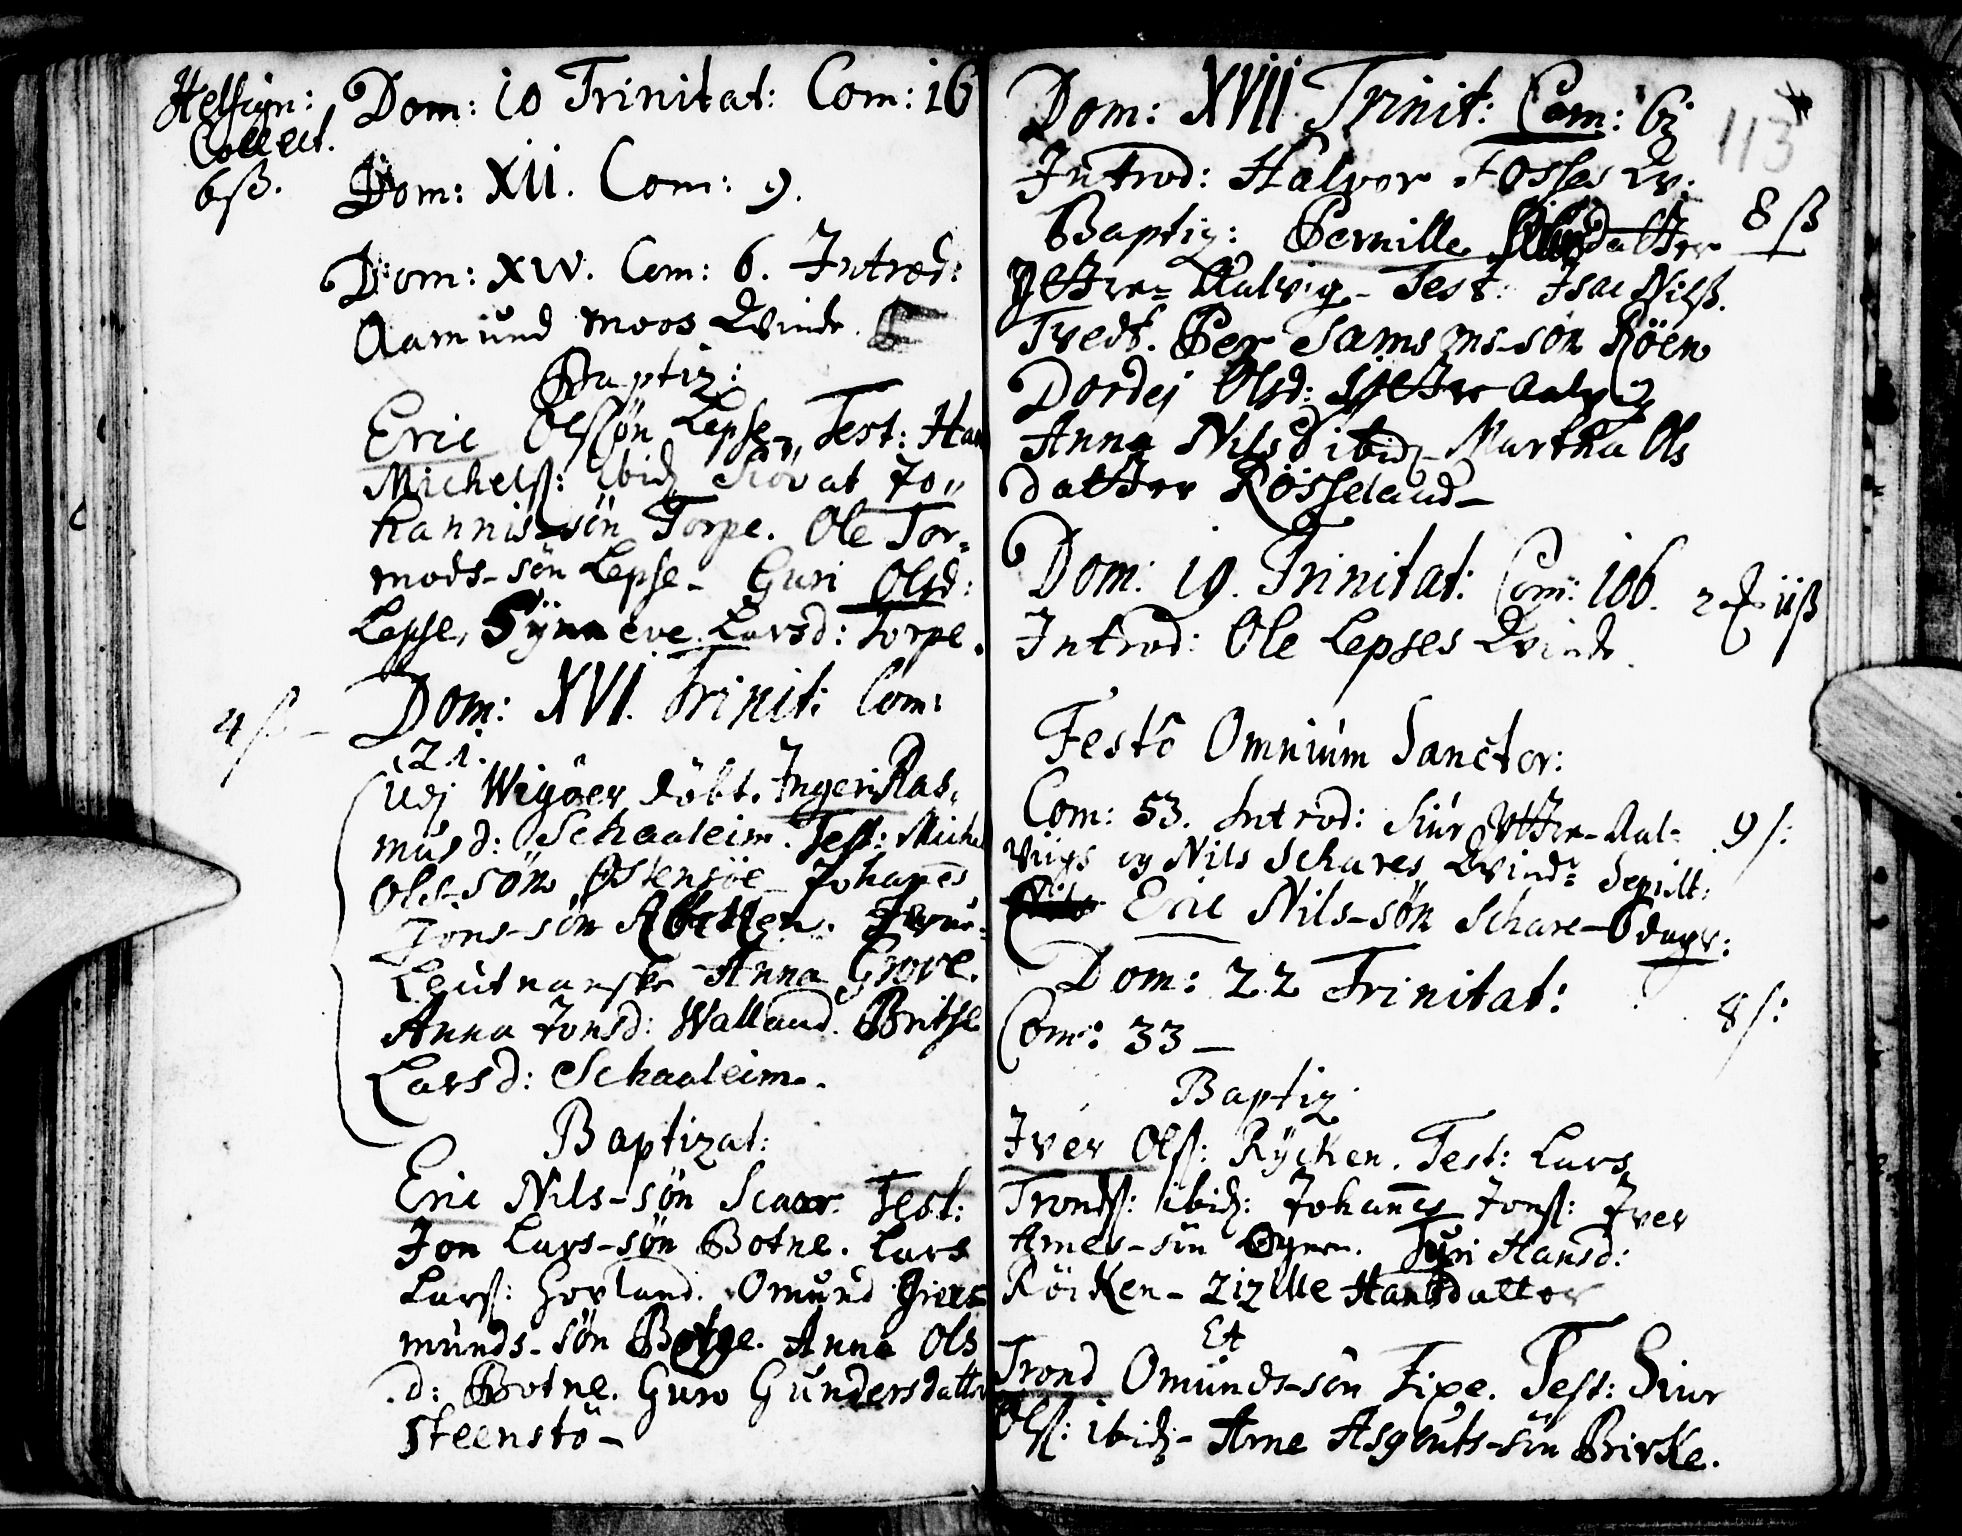 Helsign:
Collect.
6 ß.
Dom: 10 Trinitat: Com: 16
Dom: XII. Com: 9.
Dom: XIV. Com: 6. Introd:
Aamund Moos Qvinde.
Baptiz:
Eric Olssøn Lepse, Test: Han
Michelß: ibid Siovat Jo„
hannis-søn Torpe. Ole Tor=
mods-søn Lepse- Guri Olsd:
Lepse, Synneve Larsd: Torpe.
4 ß -
Dom: XVI. Trinit: Com:
21.
Udj Wigøer döbt. Ingeri Ras,
musd: Schaaleim. Test: Michel
Ols-søn Østensöe Johanes
Jons-søn
Leutnanske Anna Grove.
Anna Jonsd: Walland. Britse
Larsd: Schaaleim.
Baptizat:
Eric Nils-søn Scaar. Test:
Jon Lars-søn Botne. Lars
Larß: Horland. Omund Giers
munds-søn Botne. Anna Ols
d: Botne. Guro Gundersdatter
Steenstö-
Dom: XVII Trinit: Com: 61
113
Introd: Halvor Fosses Qv:
8 ß
Baptiz: Pernille datter
Yttre= Aalvig- Test: Isac Nilß.
Tvedt. Per Samsons-søn Röen
Dordej Olsd: Yttre Aalvig
Anna Nilsd ibid- Martha Ols
datter Rösseland-
Dom: 19. Trinitat: Com: 106.
Introd: Ole Lepses Qvinde.
Festo Omnium Sanctor:
Com: 53. Introd: Siur Yttre-Aal-
9 ß:
viigs og Nils Schares Qvinde= Sepult:
Eric Nils-søn Schare-6 dags:
Dom: 22 Trinitat:
8 ß:
Com: 33-
Baptiz
Iver Olß: Rÿcken. Test: Lars
Trondß: ibid: Johannes Jonß: Iver
Arnes-søn Öynen. Turi Hansd:
Röcken- Zizille Hansdatter
Et
Trond Omunds-søn Fixe. Test: Siur
Olß: ibid- Arne Asgouts-søn Birke.